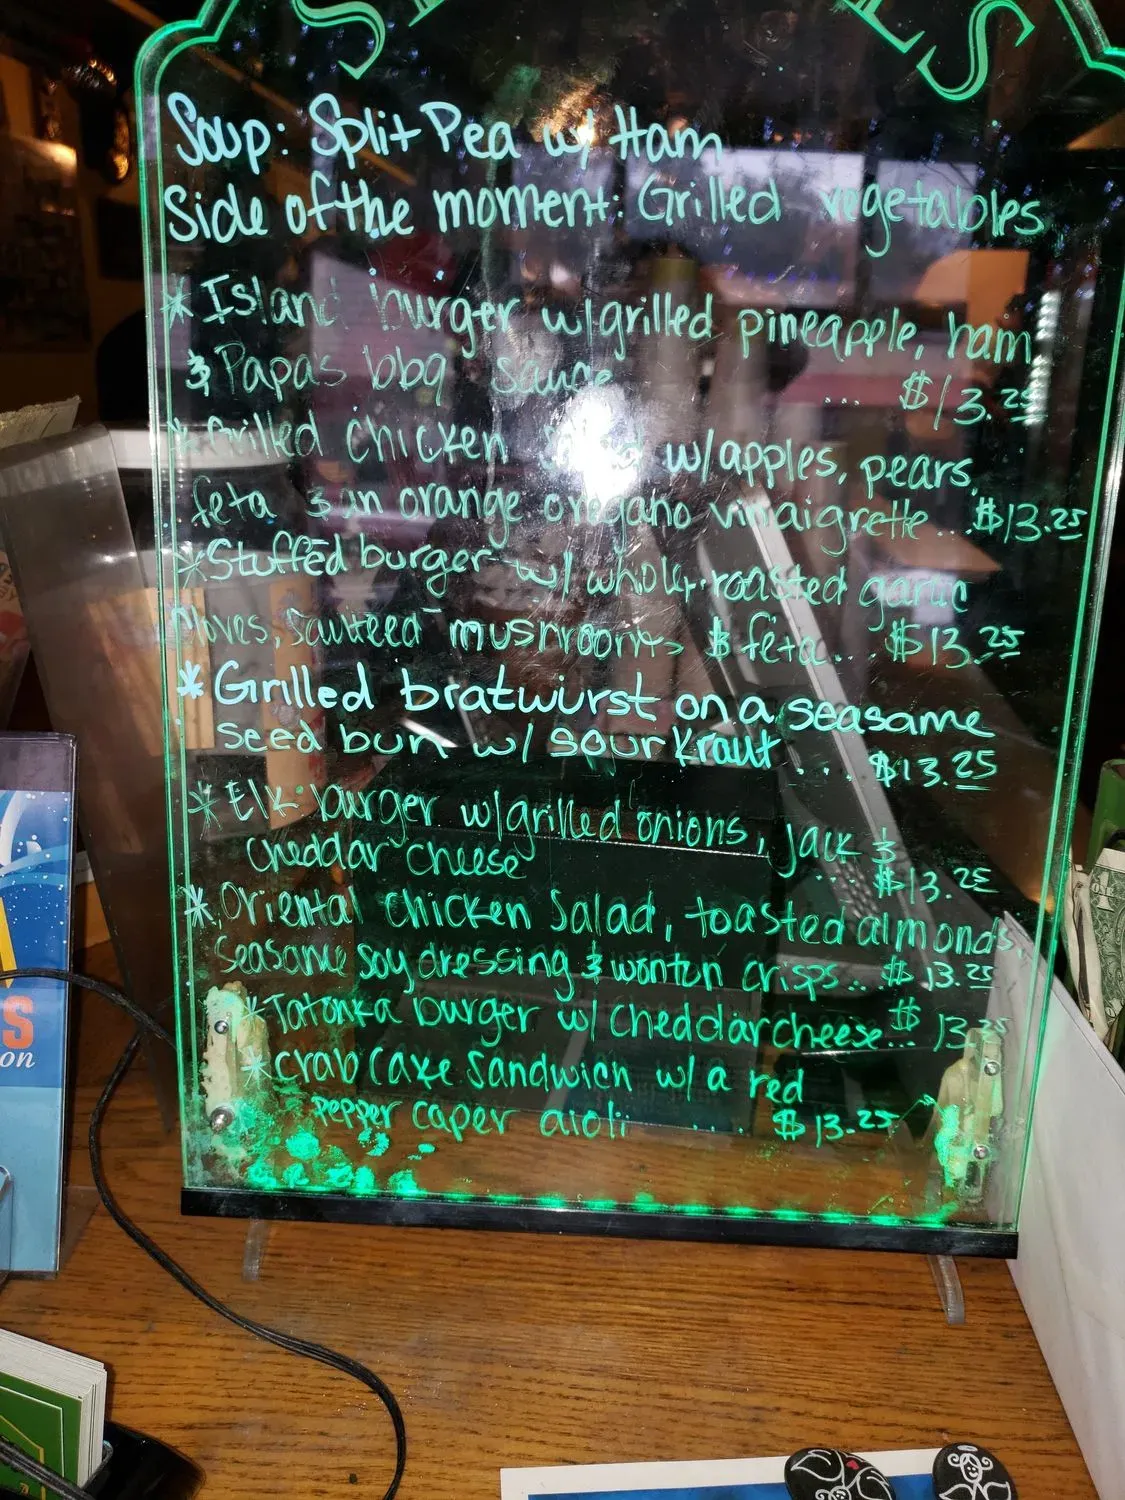 Soup: Split Pea w/ Ham
Side of the moment: Grilled vegetables
* Island burger w/grilled pineapple, ham
& Papas bbq sauce ... $13.25
* Grilled chicken salad w/apples, pears,
feta & an orange oregano vinaigrette...$13.25
* Stuffed burger w/ whole roasted garlic
cloves, Sauteed mushrooms & feta... $13.25
* Grilled bratwurst on a seasame
seed bun w/ sourkraut ... $13.25
* Elk burger w/grilled onions, jack &
cheddar cheese ... $13.25
* Oriental chicken salad, toasted almonds,
seasame soy dressing & wonton crisps.. $13.25
* Tatonka burger w/ cheddar cheese... $13.25
* Crab Cake Sandwich w/ a red
pepper caper aioli .... $13.25
S
on